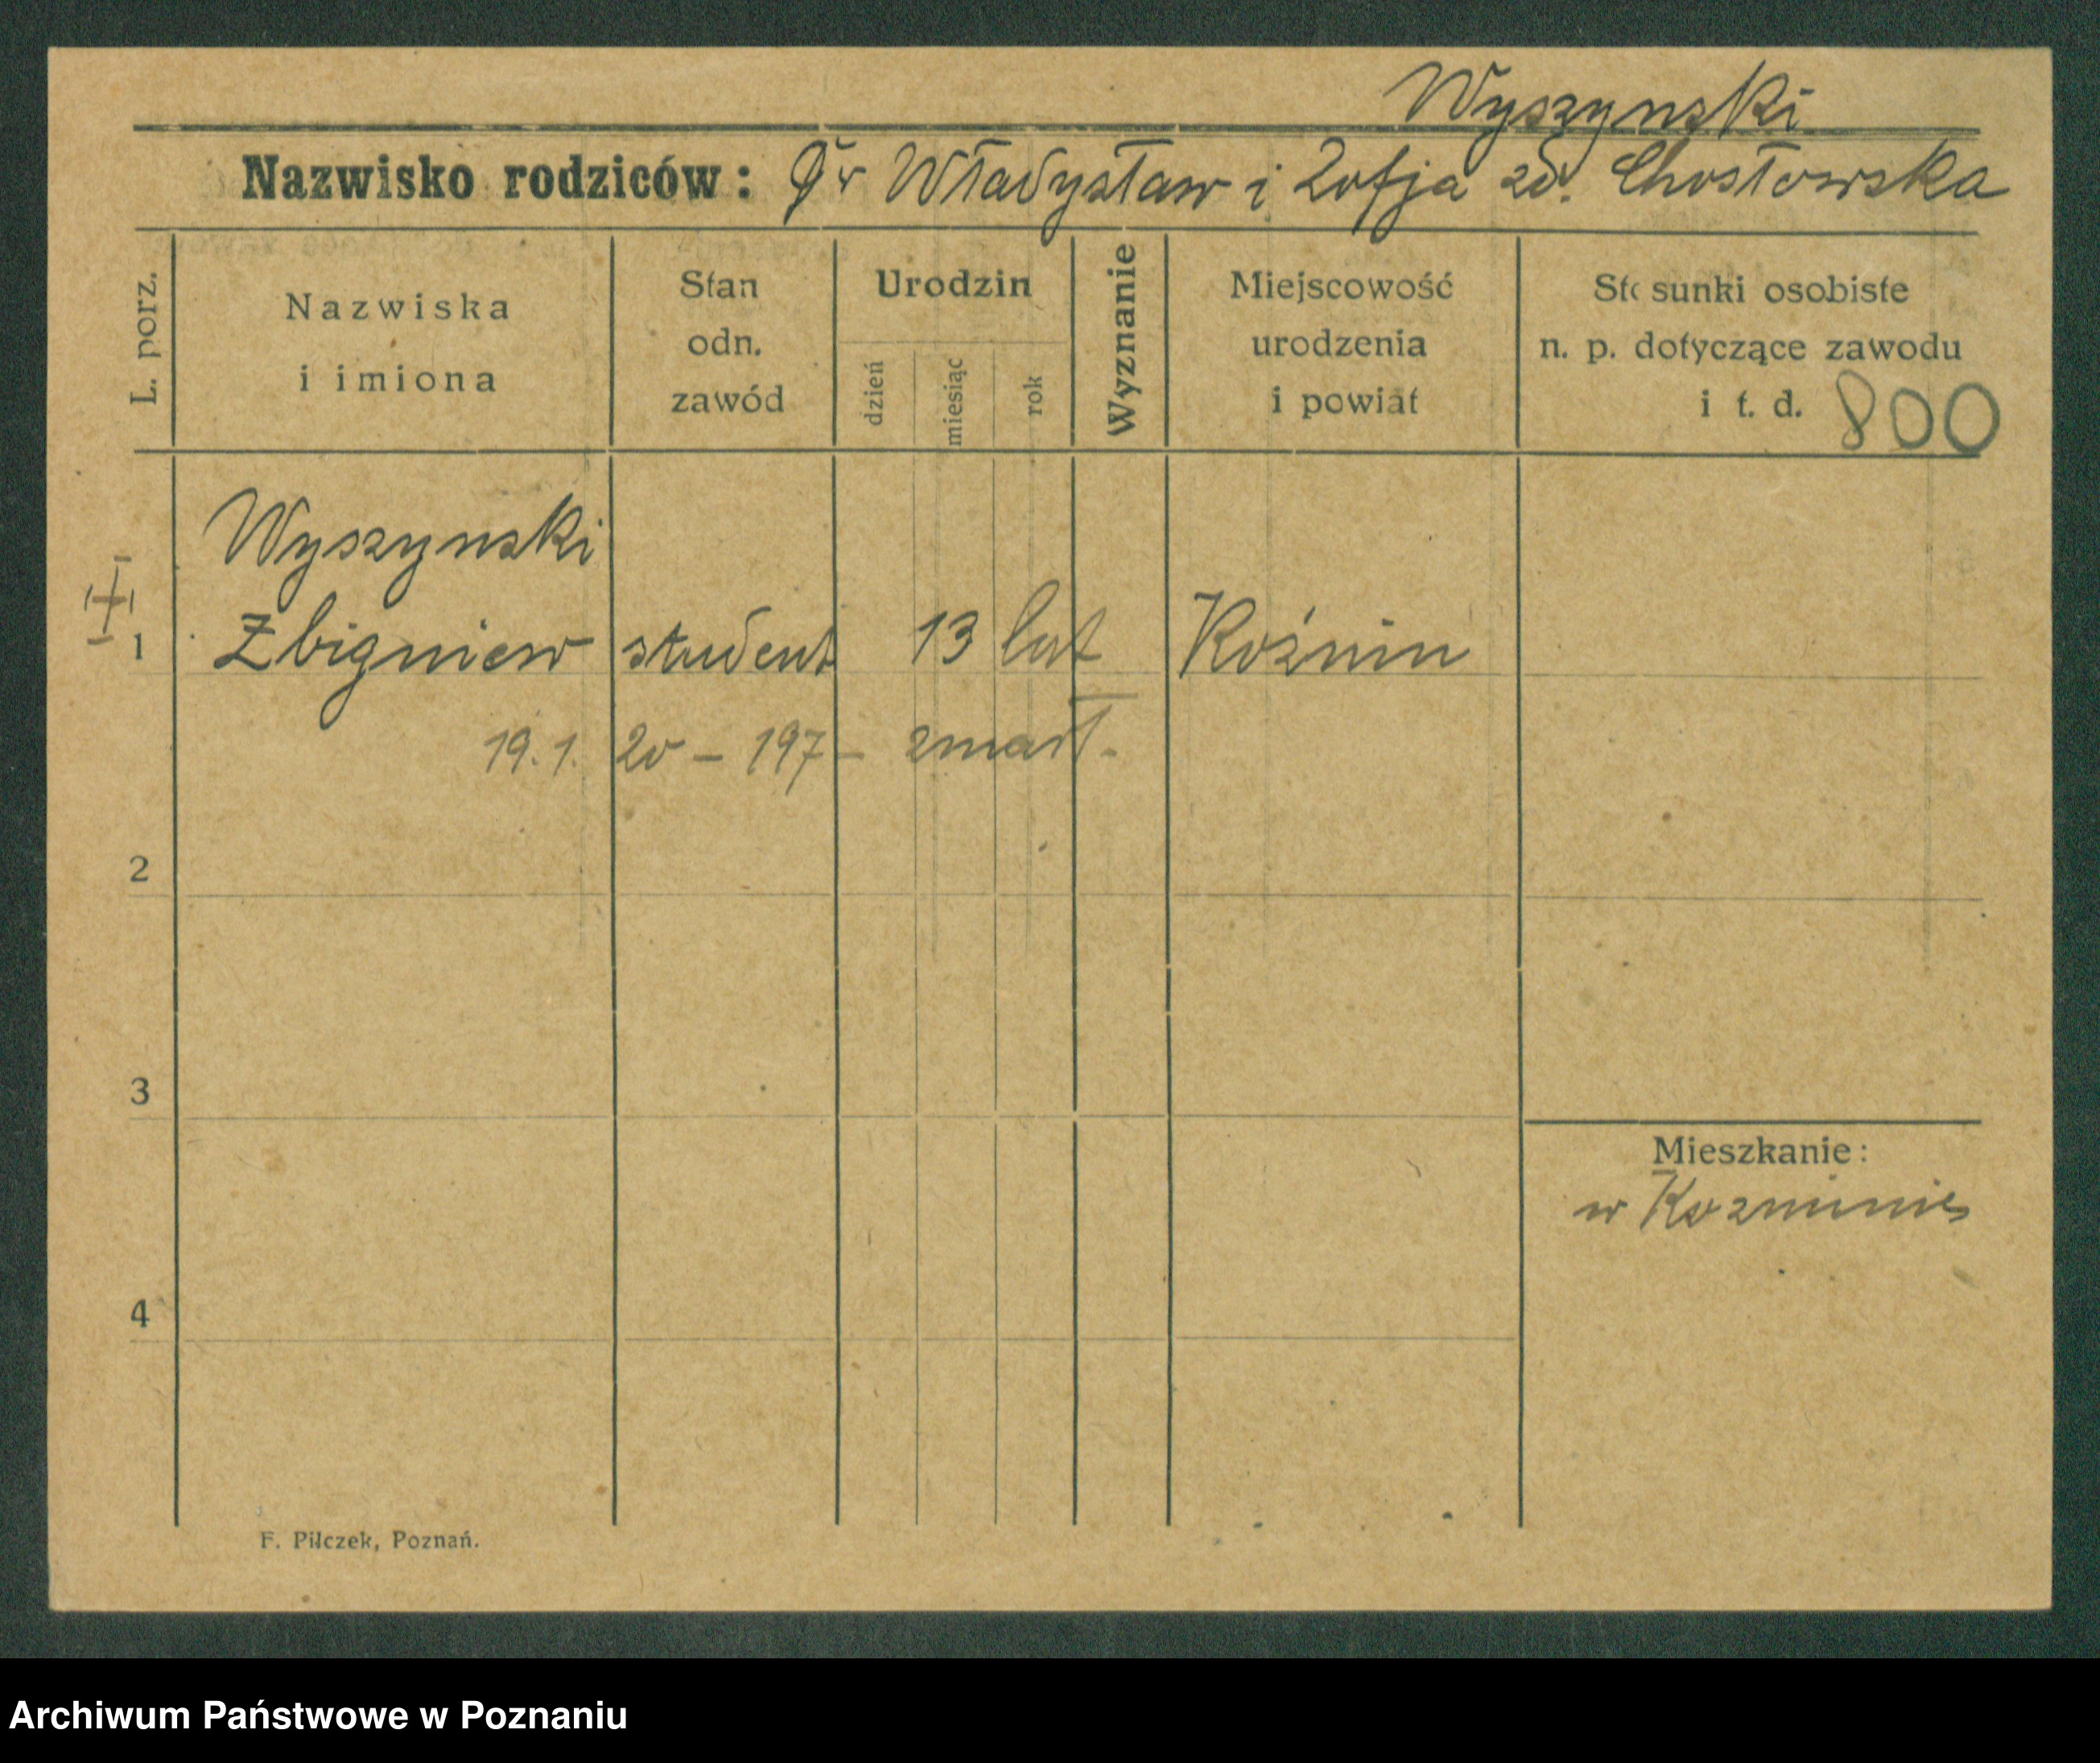 Wyszynski
Nazwisko rodziców: Dr Władysław i Zofja zd. Chosłowska
L. porz.
Nazwiska
i imiona
Stan
odn.
zawód
Urodzin
dzień
miesiąc
rok
Wyznanie
Miejscowość
urodzenia
i powiat
Stosunki osobiste
n. p. dotyczące zawodu
i t. d. 800
Wyszynski
1 Zbigniew student 13 lat Koźmin
19.1. 20 - 197 - zmarł.
2
3
Mieszkanie:
w Kozminie
4
F. Pilczek, Poznań.
Archiwum Państwowe w Poznaniu